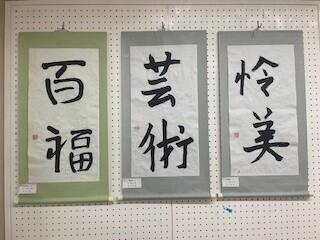 百福
芸術
怜美